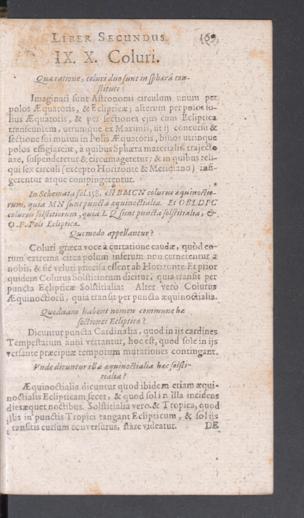 LIBER SECUNDUS. 169
IX. X. Coluri.
Qua ratione, coluri duo sunt in sphæra con-
stituti?
Imaginati sunt Astronomi circulum unum per
polos Æquatoris, & Eclipticæ; alterum per polos
lius Æquatoris, & per sectiones ejus cum Ecliptica
transeuntem, utrunque ex Maximis, ut ij concursu &
sectione sui mutua in Polis Æquatoris, binos utrinque
polos effigiarent, a quibus Sphæra materialis trajecto
axe, suspenderetur & circumagetetur; & in quibus reli-
qui sex circuli (excepto Horizonte & Meridiano) 
gerentur atque compingerentur.
In Schemate fol. 158. est BMCN colurus æquinoctio-
rum, quia MN sunt puncta æquinoctialia. Et OBLDFC
colurus solstitiorum, quia L Q sunt puncta solstitialia, &
O.F. Poli Eclipticæ.
Quomodo appellantur?
Coluri græca voce à curtatione caudæ, quod eo-
rum extrema circa polum inferum non cernerentur à
nobis, & sic velut præcisa essent ab Horizonte Et prior
quidem Colurus Solstitiorum dicitur, quia transit per
puncta Eclipticæ Solstitialia: Alter verò Colurus
Æquinoctiorū, quia transit per puncta æquinoctialia.
Quodnam habent nomen commune hæ
sectiones Eclipticæ?
Dicuntur puncta Cardinalia, quod in ijs cardines
Tempestatum anni vertantur, hoc est, quod sole in ijs
versante præcipuæ temporum mutationes contingant.
Unde dicuntur illa æquinoctialia hæc solsti-
tialia?
Æquinoctialia dicuntur quod ibidem etiam æqui-
noctialis Eclipticam secet, & quod sol in illa incidens
dies æquet noctibus. Solstitialia vero & Tropica, quod
illis in punctis Tropici tangant Eclipticam, & sol ijs
transitis cursum conversurus, stare videatur. DE